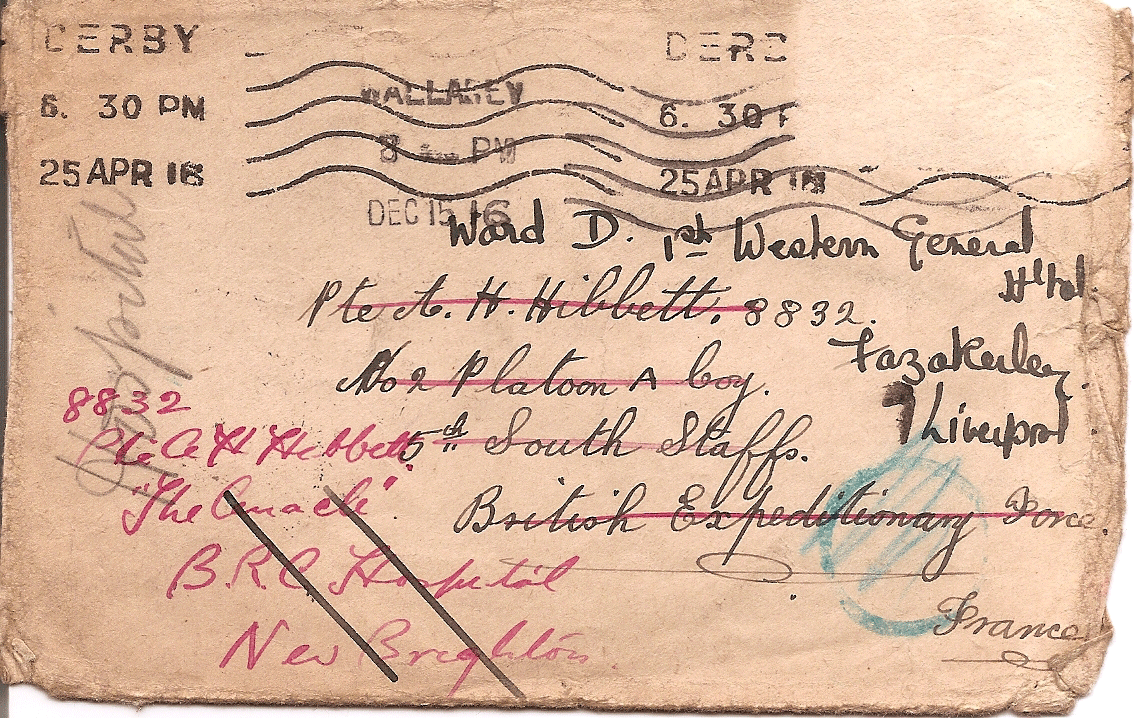 DERBY
6. 30 PM
25 APR 16
DERB
6. 30 P
25 APR 16
WALLASEY
8 PM
DEC 15 16
Ward D. 1st Western General
Hptal.
Fazakerley
Liverpool
Pte A. H. Hibbett. 8832.
No 2 Platoon A Coy.
5th South Staffs.
British Expeditionary Force.
France
Hospital
8832
Pte A H Hibbett
"The
B.R.C Hospital
New Brighton.